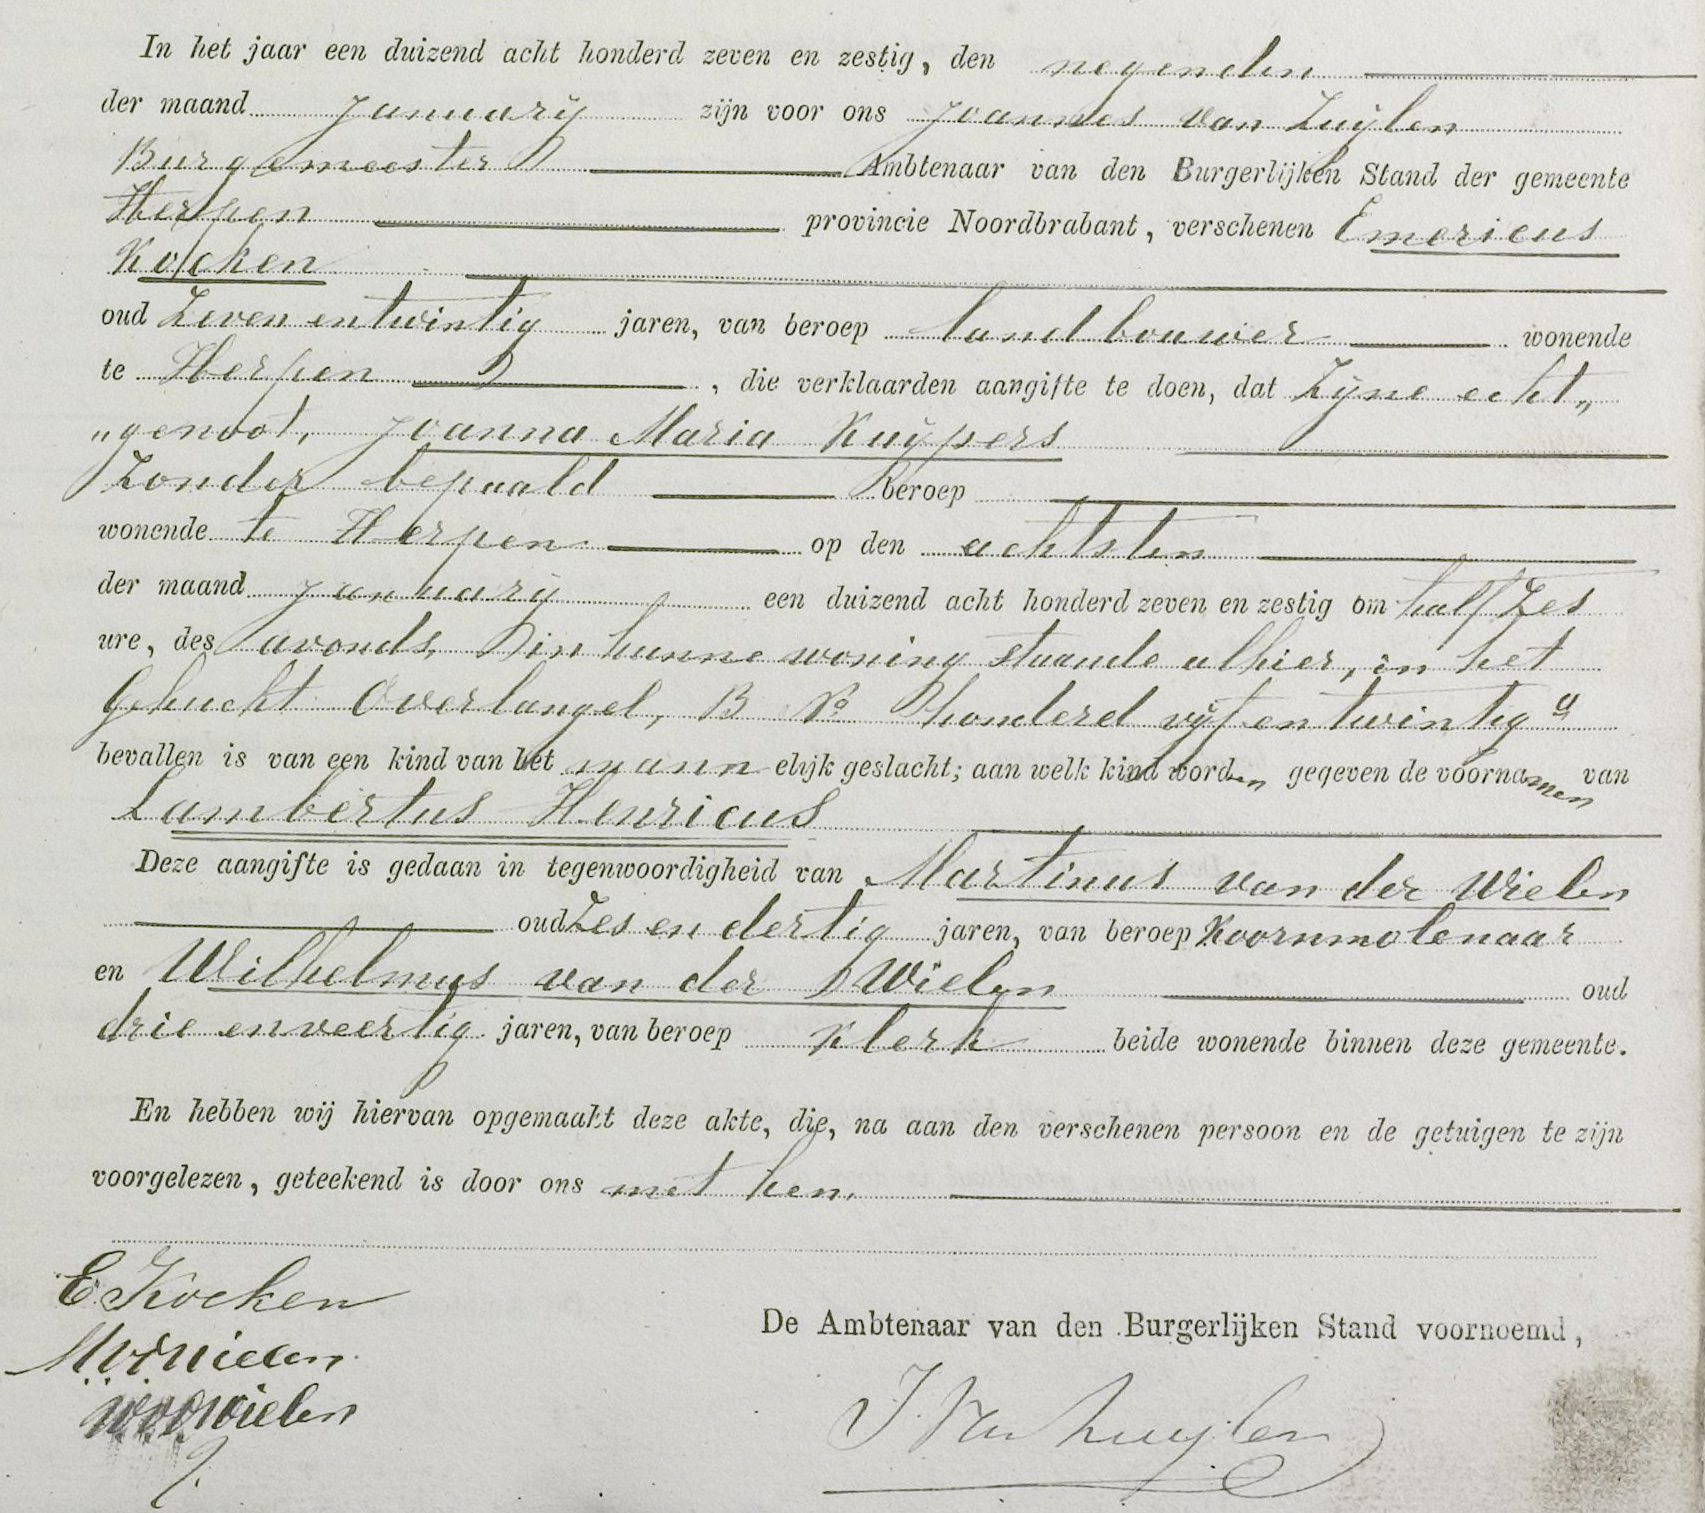 In het jaar een duizend acht honderd zeven en zestig, den negenden
der maand January zijn voor ons Joannes van Zuylen
Burgemeester Ambtenaar van den Burgerlijken Stand der gemeente
Herpen provincie Noordbrabant, verschenen Emericus
Kocken
oud Zeven en twintig jaren, van beroep landbouwer wonende
te Herpen, die verklaarden aangifte te doen, dat Zyne echt„
„genoot, Joanna Maria Kuypers
Zonder bepaald beroep
wonende te Herpen op den achtsten
der maand January een duizend acht honderd zeven en zestig om half Zes
ure, des avonds, in hunne woning staande alhier, in het
Gehucht Overlangel, B No honderd vyf en twintig a
bevallen is van een kind van het mannelijk geslacht; aan welk kind worden gegeven de voornamen van
Lambertus Henricus
Deze aangifte is gedaan in tegenwoordigheid van Martinus van der Wielen
oud Zes en dertig jaren, van beroep Koornmolenaar
en Wilhelmus van der Wielen oud
drie en veertig jaren, van beroep Klerk beide wonende binnen deze gemeente.
En hebben wij hiervan opgemaakt deze akte, die, na aan den verschenen persoon en de getuigen te zijn
voorgelezen, geteekend is door ons met hen.
E Kocken
De Ambtenaar van den Burgerlijken Stand voornoemd,
MvdWielen
WvdWielen
J. Van Zuylen